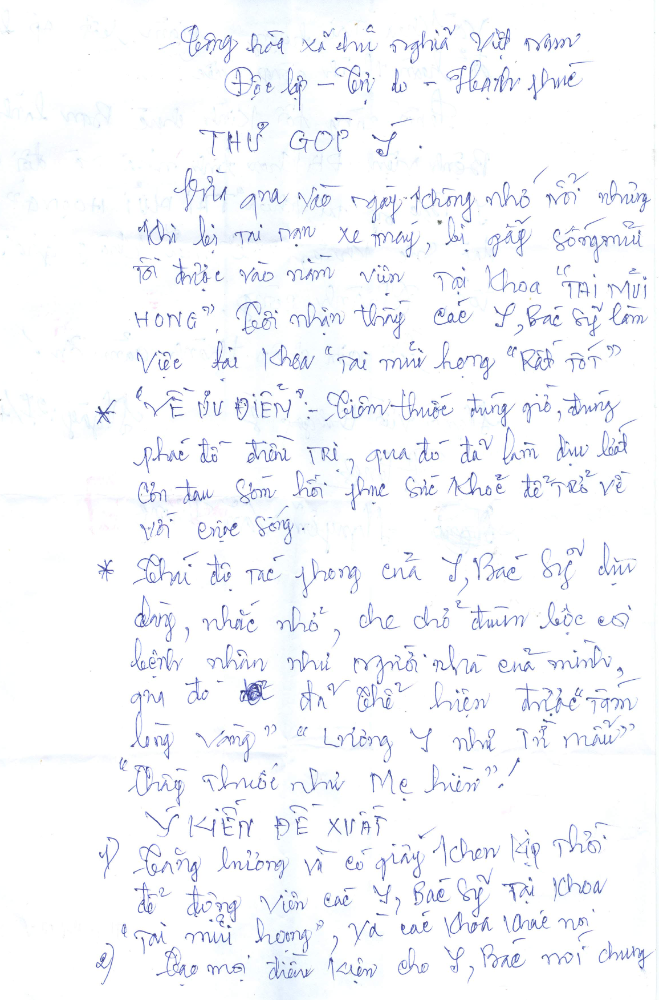 - Cộng hòa xã chủ nghĩa Việt nam
Độc lập - Tự do - Hạnh phúc
THƯ GÓP Ý.
Vừa qua vào ngày không nhớ nổi nhưng
khi bị tai nạn xe máy, bị gãy sống mũi
tôi được vào nằm viện tại khoa "TAI MŨI
HONG". Tôi nhận thấy các Y, Bác sỹ làm
việc tại khoa "Tai mũi họng "Rất tốt"
* "VỀ ƯU ĐIỂN":- Tiêm thuốc đúng giờ, đúng
phác đồ điều trị, qua đó đã làm dịu bớt
cơn đau sớm hồi phục sức khoẻ để trở về
với cuộc sống.
* Thái độ tác phong của Y, Bác sỹ dịu
dàng, nhắc nhở, che chở đùm bộc coi
bệnh nhân như người nhà của mình,
qua đó đã thể hiện được "Tấm
lòng vàng" "Lương Y như Từ mẫu"
"Thầy thuốc như Mẹ hiền"!
Ý KIẾN ĐỀ XUẤT
1) Tăng lương và có giấy khen kịp thời
để động viên các Y, Bác sỹ Tại khoa
"Tai mũi họng", và các khoa khác nơi
2) Tạo mọi điều kiện cho Y, Bác nói chung